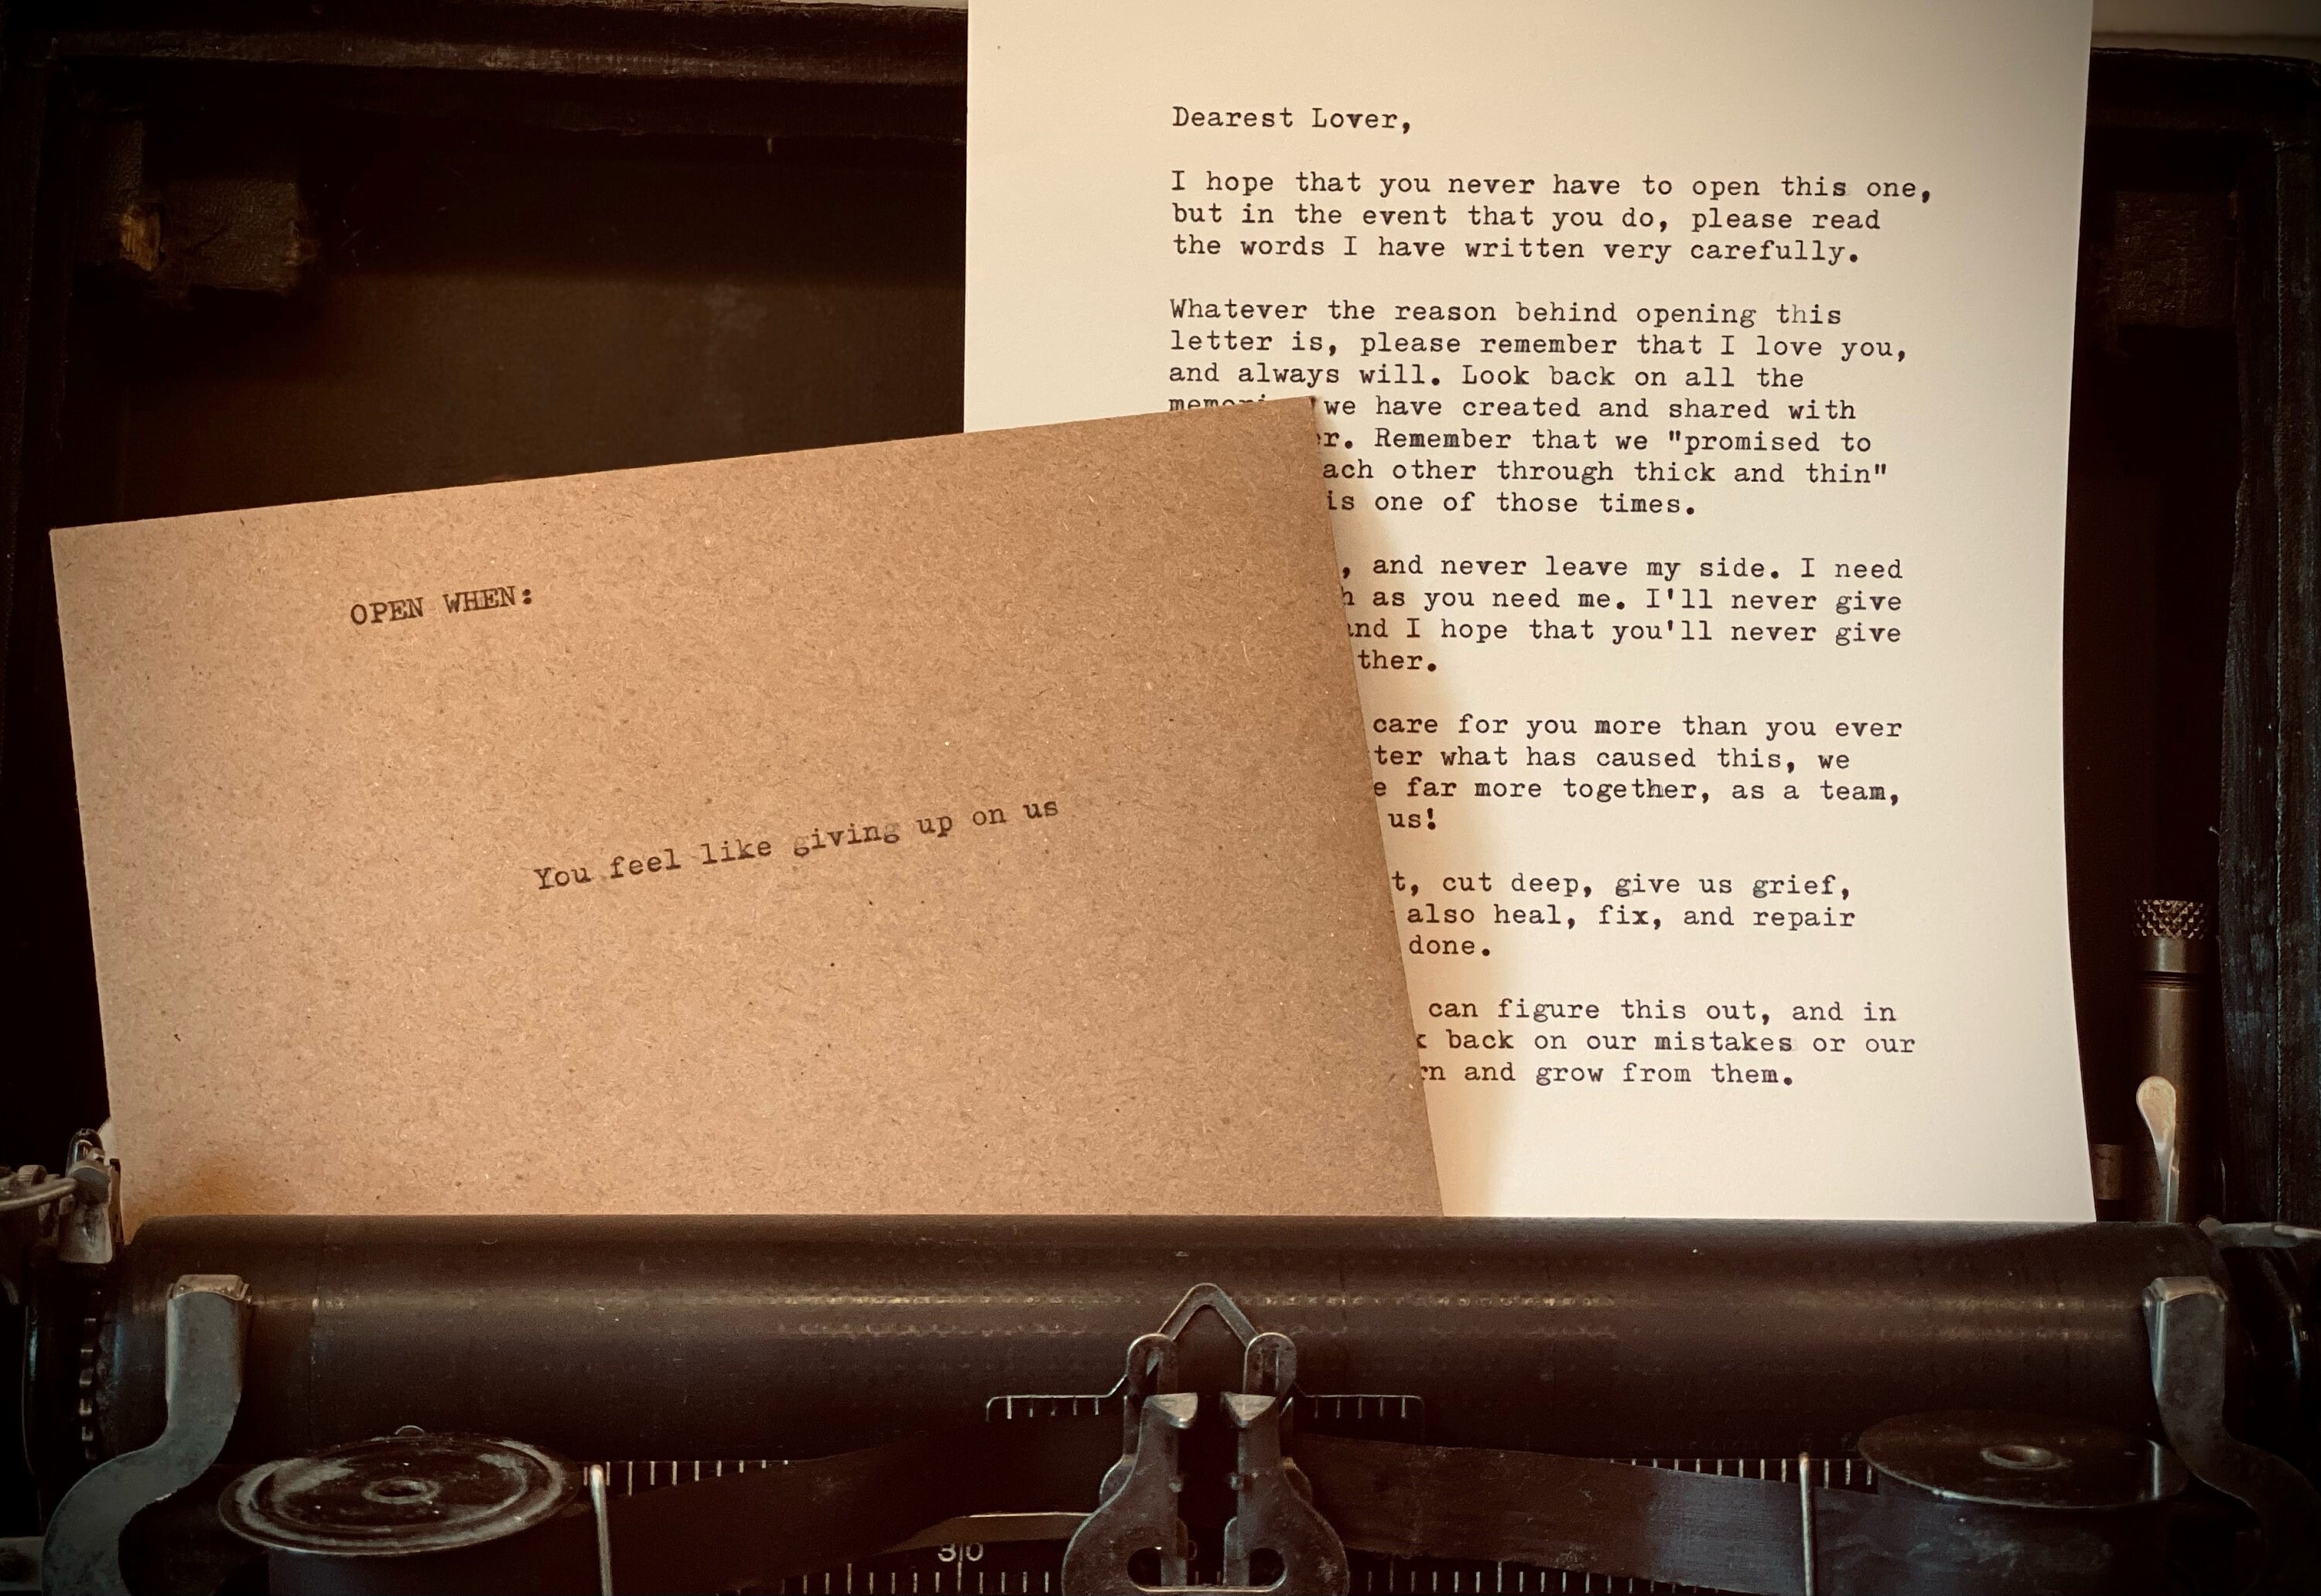 Dearest Lover,
I hope that you never have to open this one,
but in the event that you do, please read
the words I have written very carefully.
Whatever the reason behind opening this
letter is, please remember that I love you,
and always will. Look back on all the
we have created and shared with
Remember that we "promised to
other through thick and thin"
is one of those times.
, and never leave my side. I need
as you need me. I'll never give
I hope that you'll never give
care for you more than you ever
what has caused this, we
far more together, as a team,
us!
cut deep, give us grief,
also heal, fix, and repair
done.
can figure this out, and in
back on our mistakes or our
and grow from them.
OPEN WHEN:
You feel like giving up on us
30